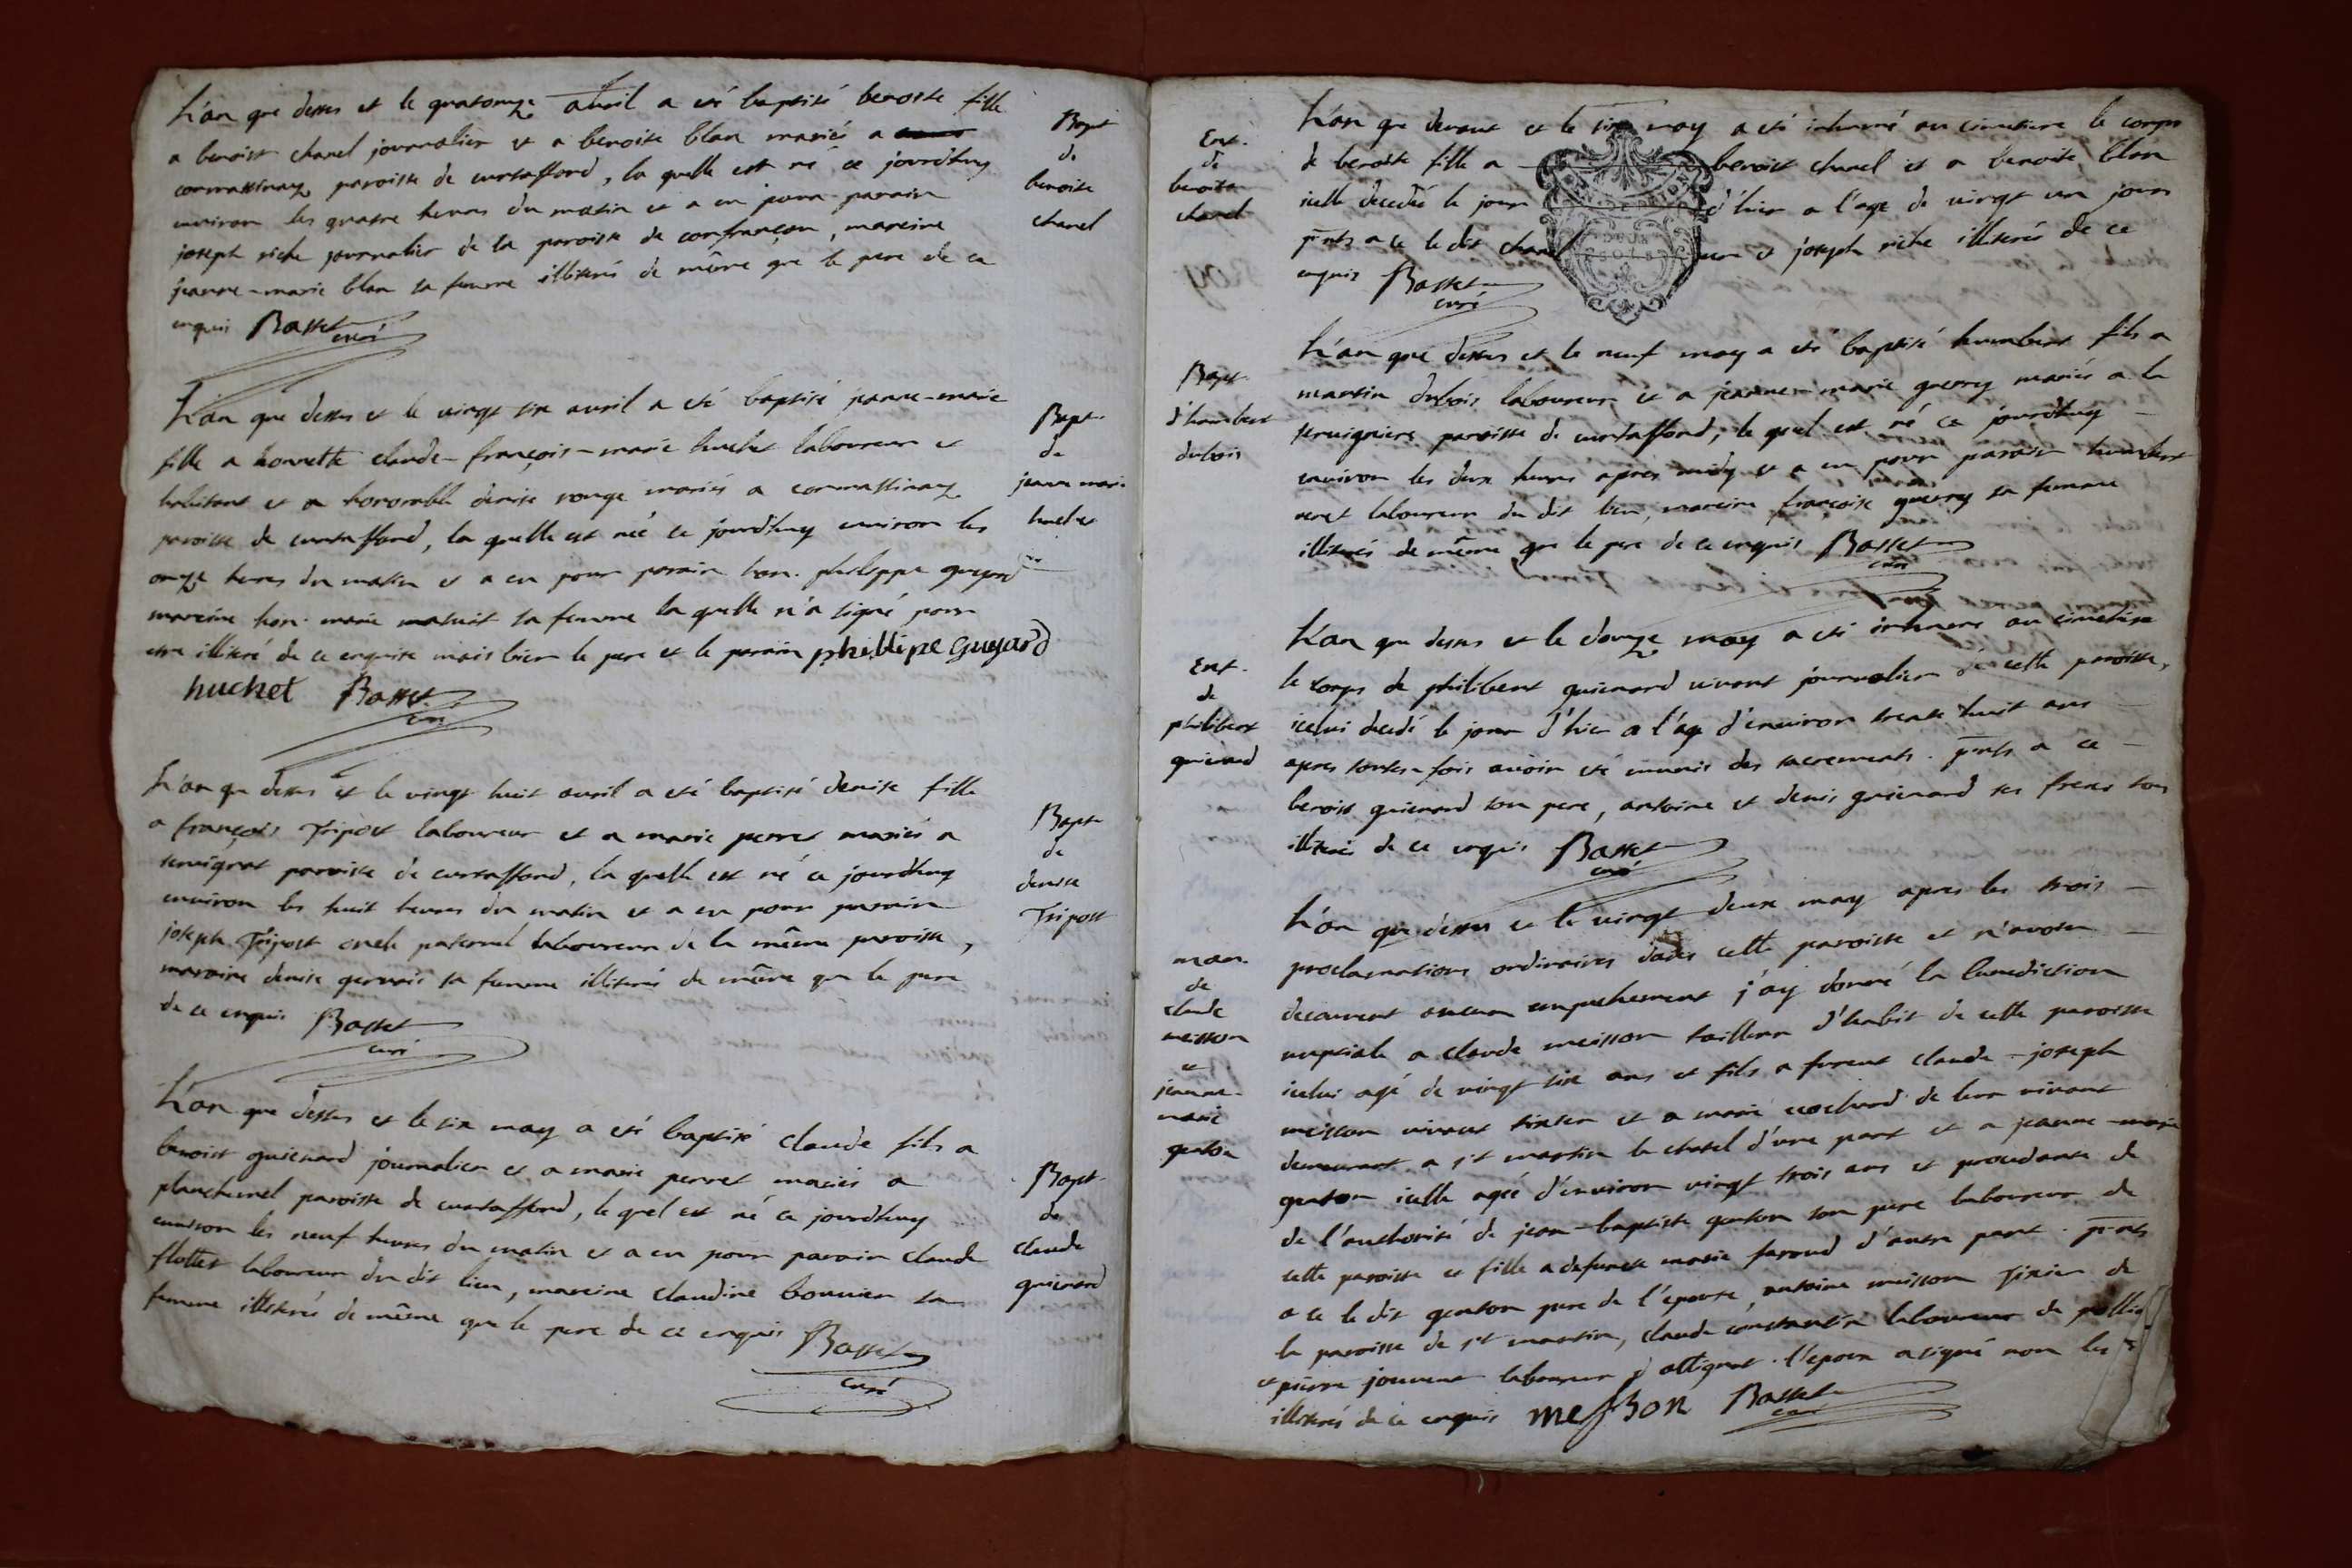 L'an que dessus et le quatorze avril a été baptisé benoite fille
a benoist chanel journalier et a benoite blan mariés a
cormassinaz paroisse de curtafford, la quelle est né ce jourdhuy
environ les quatre heures du matin et a eu pour parain
joseph riche journalier de la paroisse de confrançon, mareine
jeanne-marie blan sa femme illiterés de même que le pere de ce
enquis Basset curé
Bapt
de
benoite
chanel
L'an que dessus et le vingt six avril a été baptisé jeanne-marie
fille a honnette claude-françois-marie huchet laboureur et
habitant et a honorable denise rouge mariés a cormassinaz
paroisse de curtafford, la quelle est née ce jourdhuy environ les
onze heures du matin et a eu pour parain hon. philippe guyard
mareine hon. marie matuit sa femme la quelle n'a signé pour
etre illiteré de ce enquise mais bien le pere et le parain phillipe guyard
huchet Basset
curé
Bapt.
de
jeanne marie
huchet
L'an que dessus et le vingt huit avril a été baptisé denise fille
a françois Tripost laboureur et a marie perret mariés a
servignat paroisse de curtafford, la quelle est né ce jourdhuy
environ les huit heures du matin et a eu pour parain
joseph Tripost oncle paternel laboureur de la même paroisse,
maraine denise gervais sa femme illiterés de même que le pere
de ce enquis Basset
curé
Bapt
de
denise
Tripost
L'an que dessus et le six may a été baptisé claude fils a
benoist guienard journalier et a marie perret mariés a
planchemel paroisse de curtafford, le quel est né ce jourdhuy
environ les neuf heures du matin et a eu pour parain claude
flottet laboureur du dit lieu, mareine claudine bouvier sa
femme illiterés de même que le pere de ce enquis Basset
curé
Bapt.
de
claude
guienard
Ent.
de
benoite
chanel
L'an que devant et le six may a été inhumé au cimetiere le corps
de benoite fille a benoist chanel et a benoite blan
icelle decedée le jour d'hier a l'age de vingt un jours
pnts a ce le dit chanel et joseph riche illiterés de ce
enquis Basset
curé
Bapt.
d'humbert
dubois
L'an que dessus et le neuf may a été baptisé humbert fils a
martin dubois laboureur et a jeanne-marie guerry mariés a la
servigniere paroisse de curtafford, le quel est né ce jourdhuy
environ les deux heures apres midy et a eu pour parain humbert
veret laboureur du dit lieu, mareine françoise guerry sa femme
illiterés de même que le pere de ce enquis Basset
curé
Ent.
de
philibert
guienard
L'an que dessus et le douze may a été inhumé au cimetiere
le corps de philibert guienard vivant journalier de cette paroisse,
icelui decedé le jour d'hier a l'age d'environ trente huit ans
apres toutes-fois avoir été munis des sacrements. pnts a ce
benoist guienard son pere, antoine et denis guienard ses freres tous
illiterés de ce enquis Basset
curé
mar.
de
claude
meisson
et
jeanne-
marie
genton
L'an que dessus et le vingt deux may apres les trois
proclamations ordinaires dans cette paroisse et n'avoir
decouvert aucun empechement j'ay donné la benediction
nuptiale a claude meisson tailleur d'habit de cette paroisse
icelui agé de vingt six ans et fils a furent claude-joseph
meisson vivant tixier et a marie cochard de leur vivant
demeurant a st martin le chatel d'une part et a jeanne-marie
genton icelle agée d'environ vingt trois ans et procedante de
de l'authorité de jean-baptiste genton son pere laboureur de
cette paroisse et fille a defuncte marie faroud d'autre part. pnts
a ce le dit genton pere de l'epouse, antoine meisson Tixier de
la paroisse de st martin, claude constantin laboureur de
et pierre jouvent laboureur d'attignat. l'epoux a signé non les
illiterés de ce enquis meßson Basset
curé